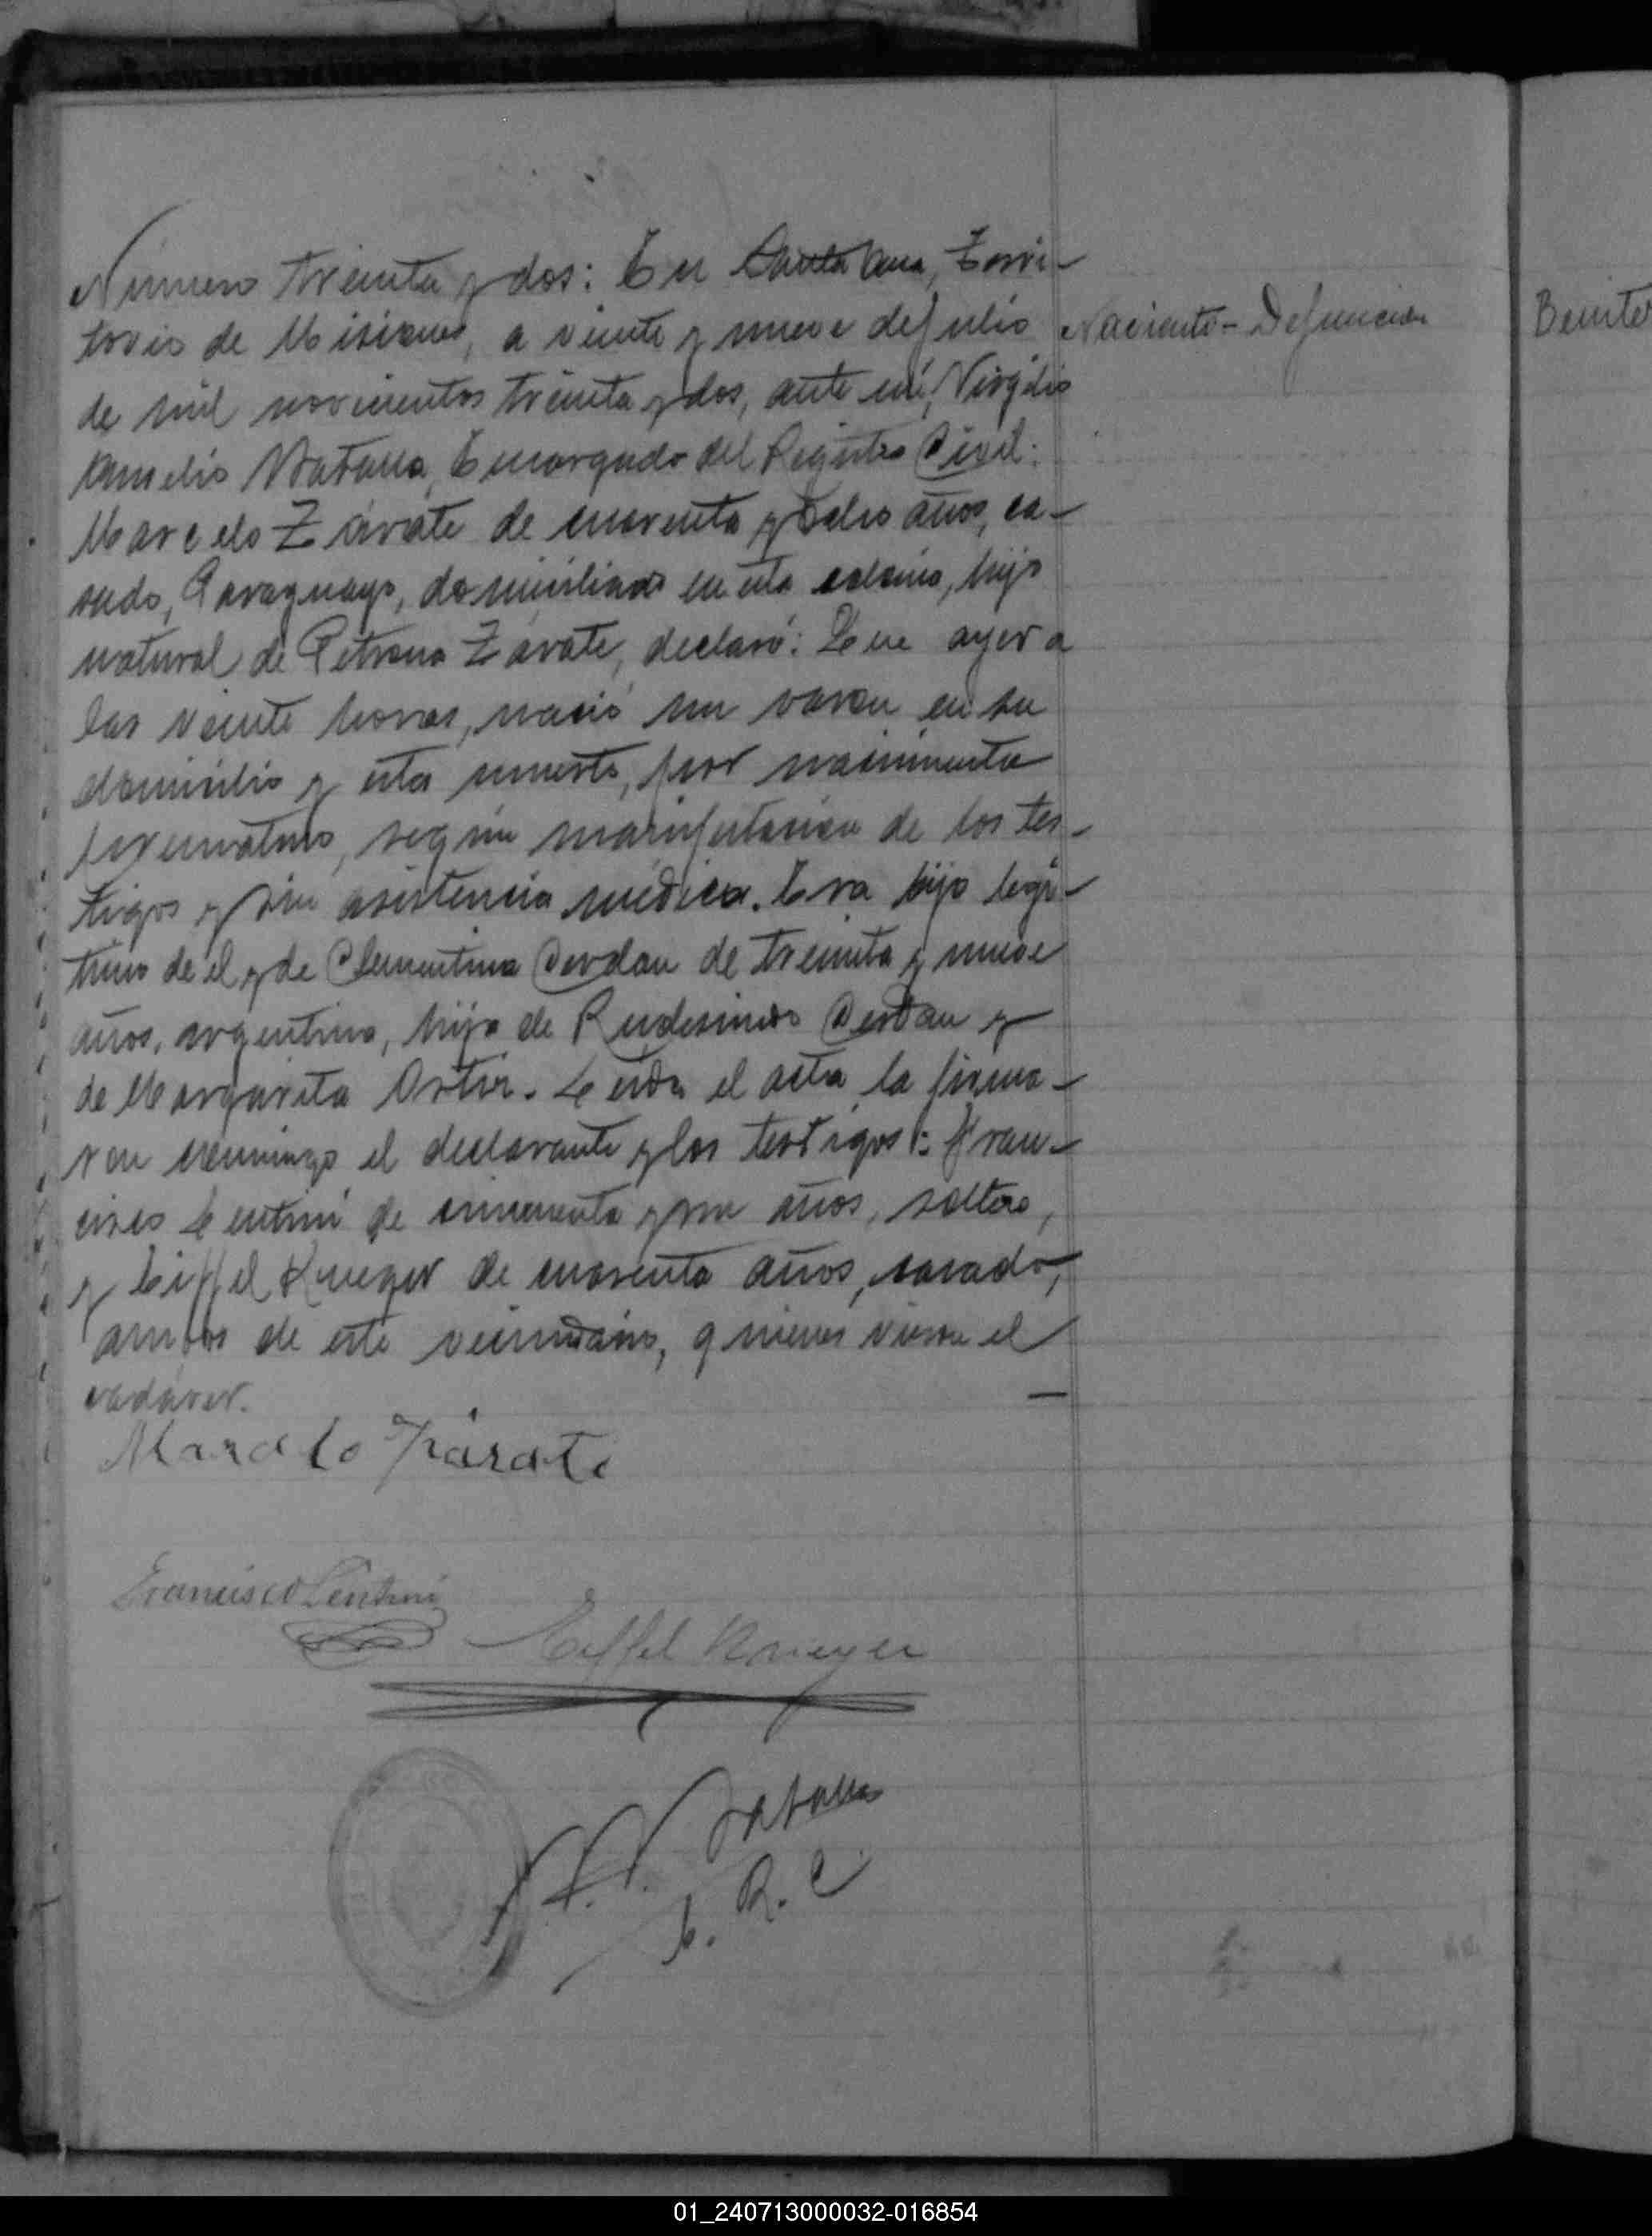 Número treinta y dos: En Santa Ana, Terri-
torio de Misiones, a veinte y nueve de Julio
de mil novecientos treinta y dos, ante mí, Virgilio
Amelio Encargado del Registro Civil:
Marcelo Zárate de cuarenta y ocho años, ca-
sado, Paraguayo, domiciliado en esta colonia, hijo
natural de Petrona Zárate, declaró: Que ayer a
las veinte horas, nació un varon en su
domicilio y esta muerto, por nacimiento
prematuro, según manifestacion de los tes-
tigos y sin asistencia médica. Era hijo legí-
timo de el y de Clementina Cerdan de treinta y nueve
años, argentina, hija de Rudesindo Cerdan y
de Margarita Ortiz. Leida el acta la firma-
ron conmigo el declarante y los testigos: Fran-
cisco Lentini de cincuenta y un años, soltero,
y Eiffel Krueger de cuarenta años, casado,
ambos de este vecindario, quienes vieron el
cadáver.
Marcelo Zárate
Francisco Lentini
Eiffel Krueger
E. R. C
Nacimto - Defuncion
Benite
01_240713000032-016854